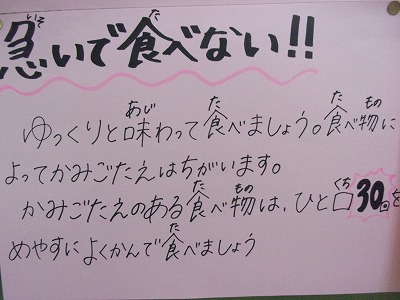 急いで食べない!!
ゆっくりと味わって食べましょう。食べ物に
よってかみごたえはちがいます。
かみごたえのある食べ物は、ひと口30回を
めやすによくかんで食べましょう